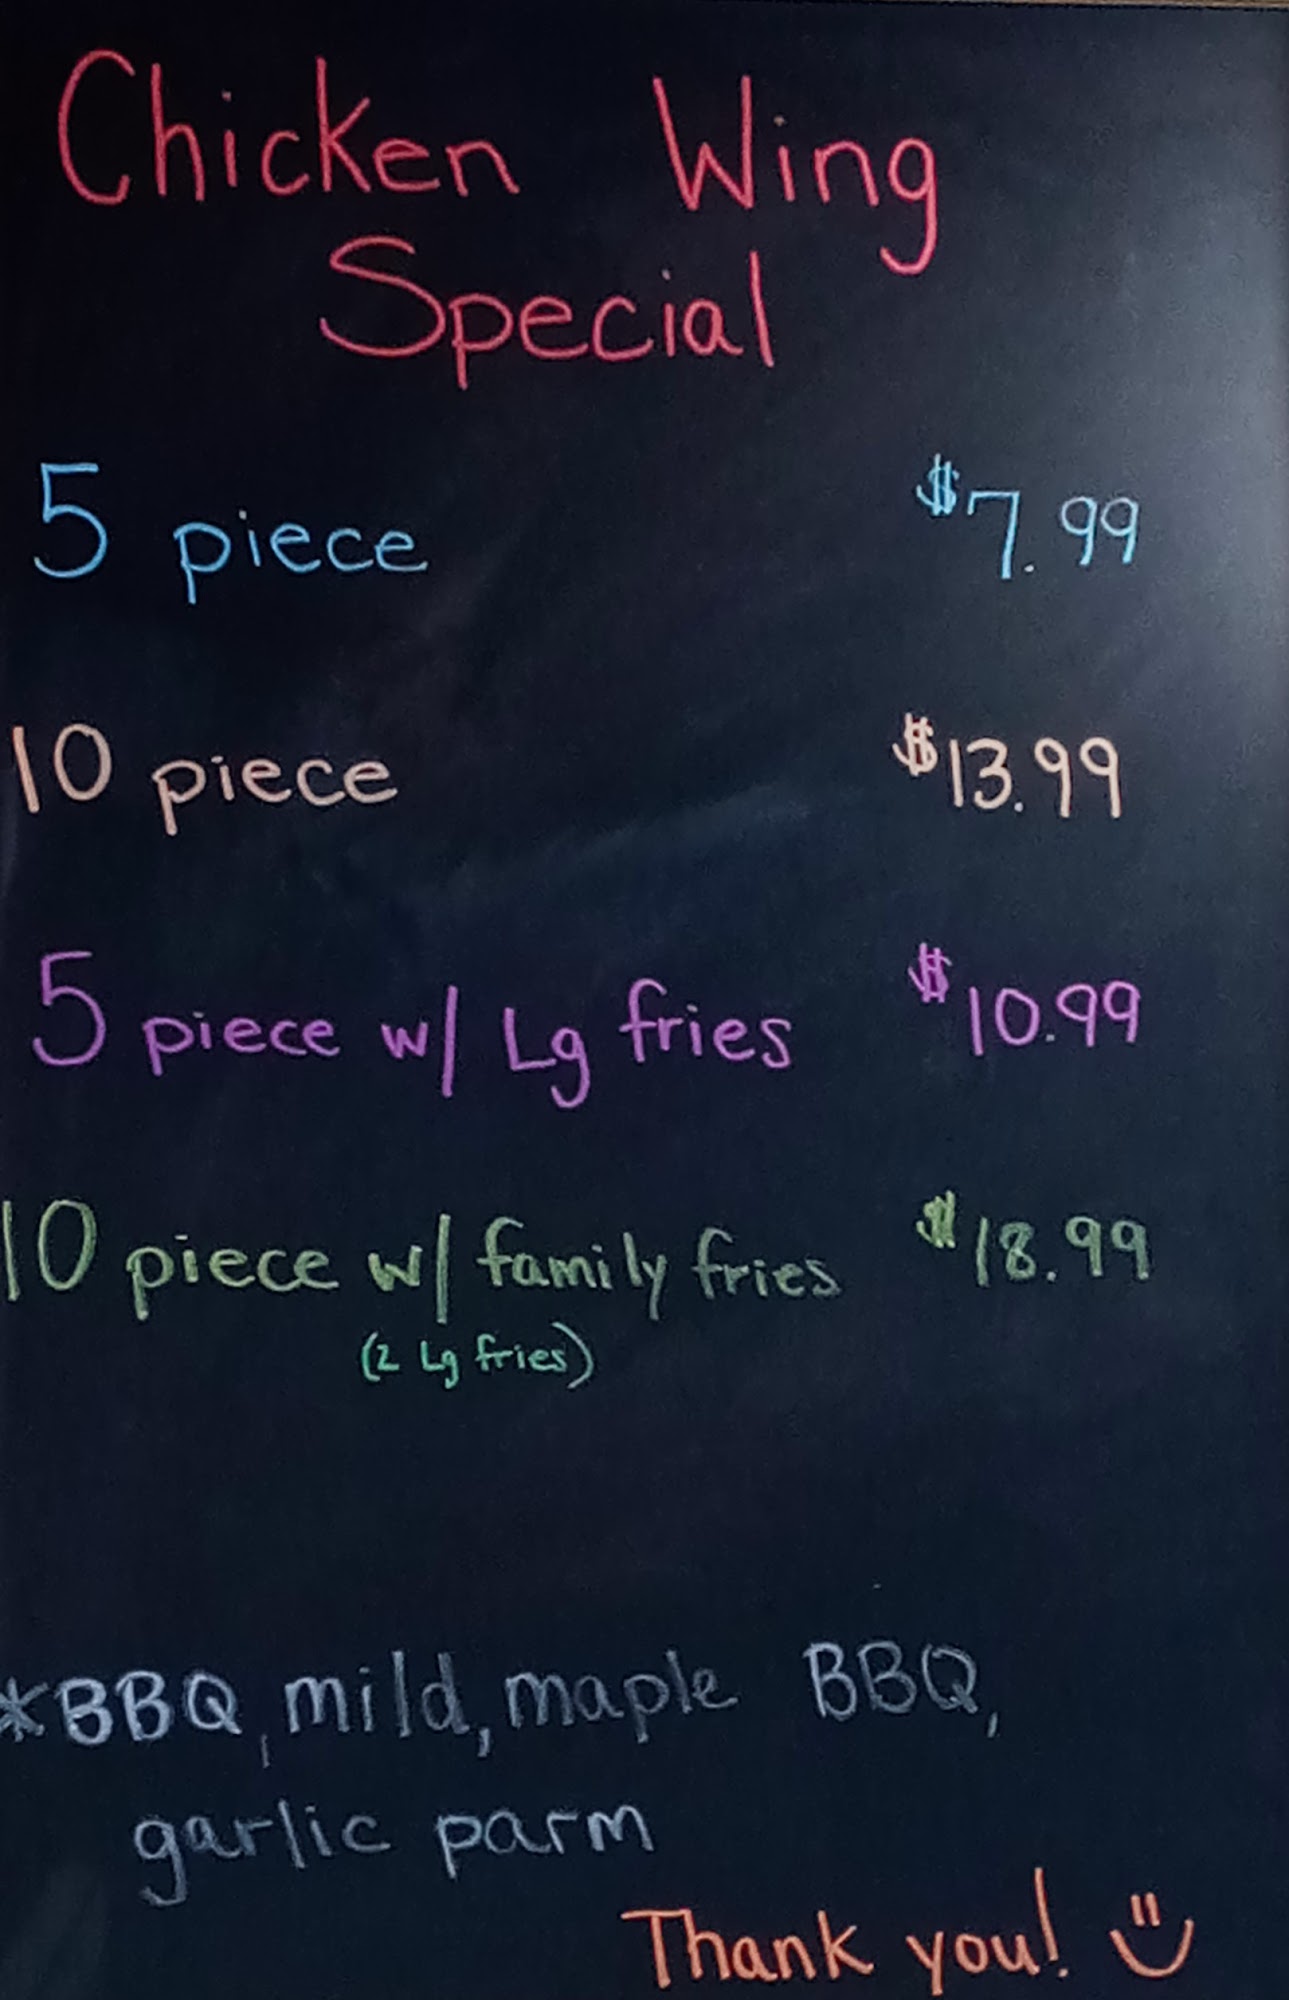 Chicken Wing
Special
5 piece $7.99
10 piece $13.99
5 piece w/ Lg fries $10.99
10 piece w/ family fries $18.99
(2 Lg fries)
*BBQ, mild, maple BBQ,
garlic parm
Thank you!